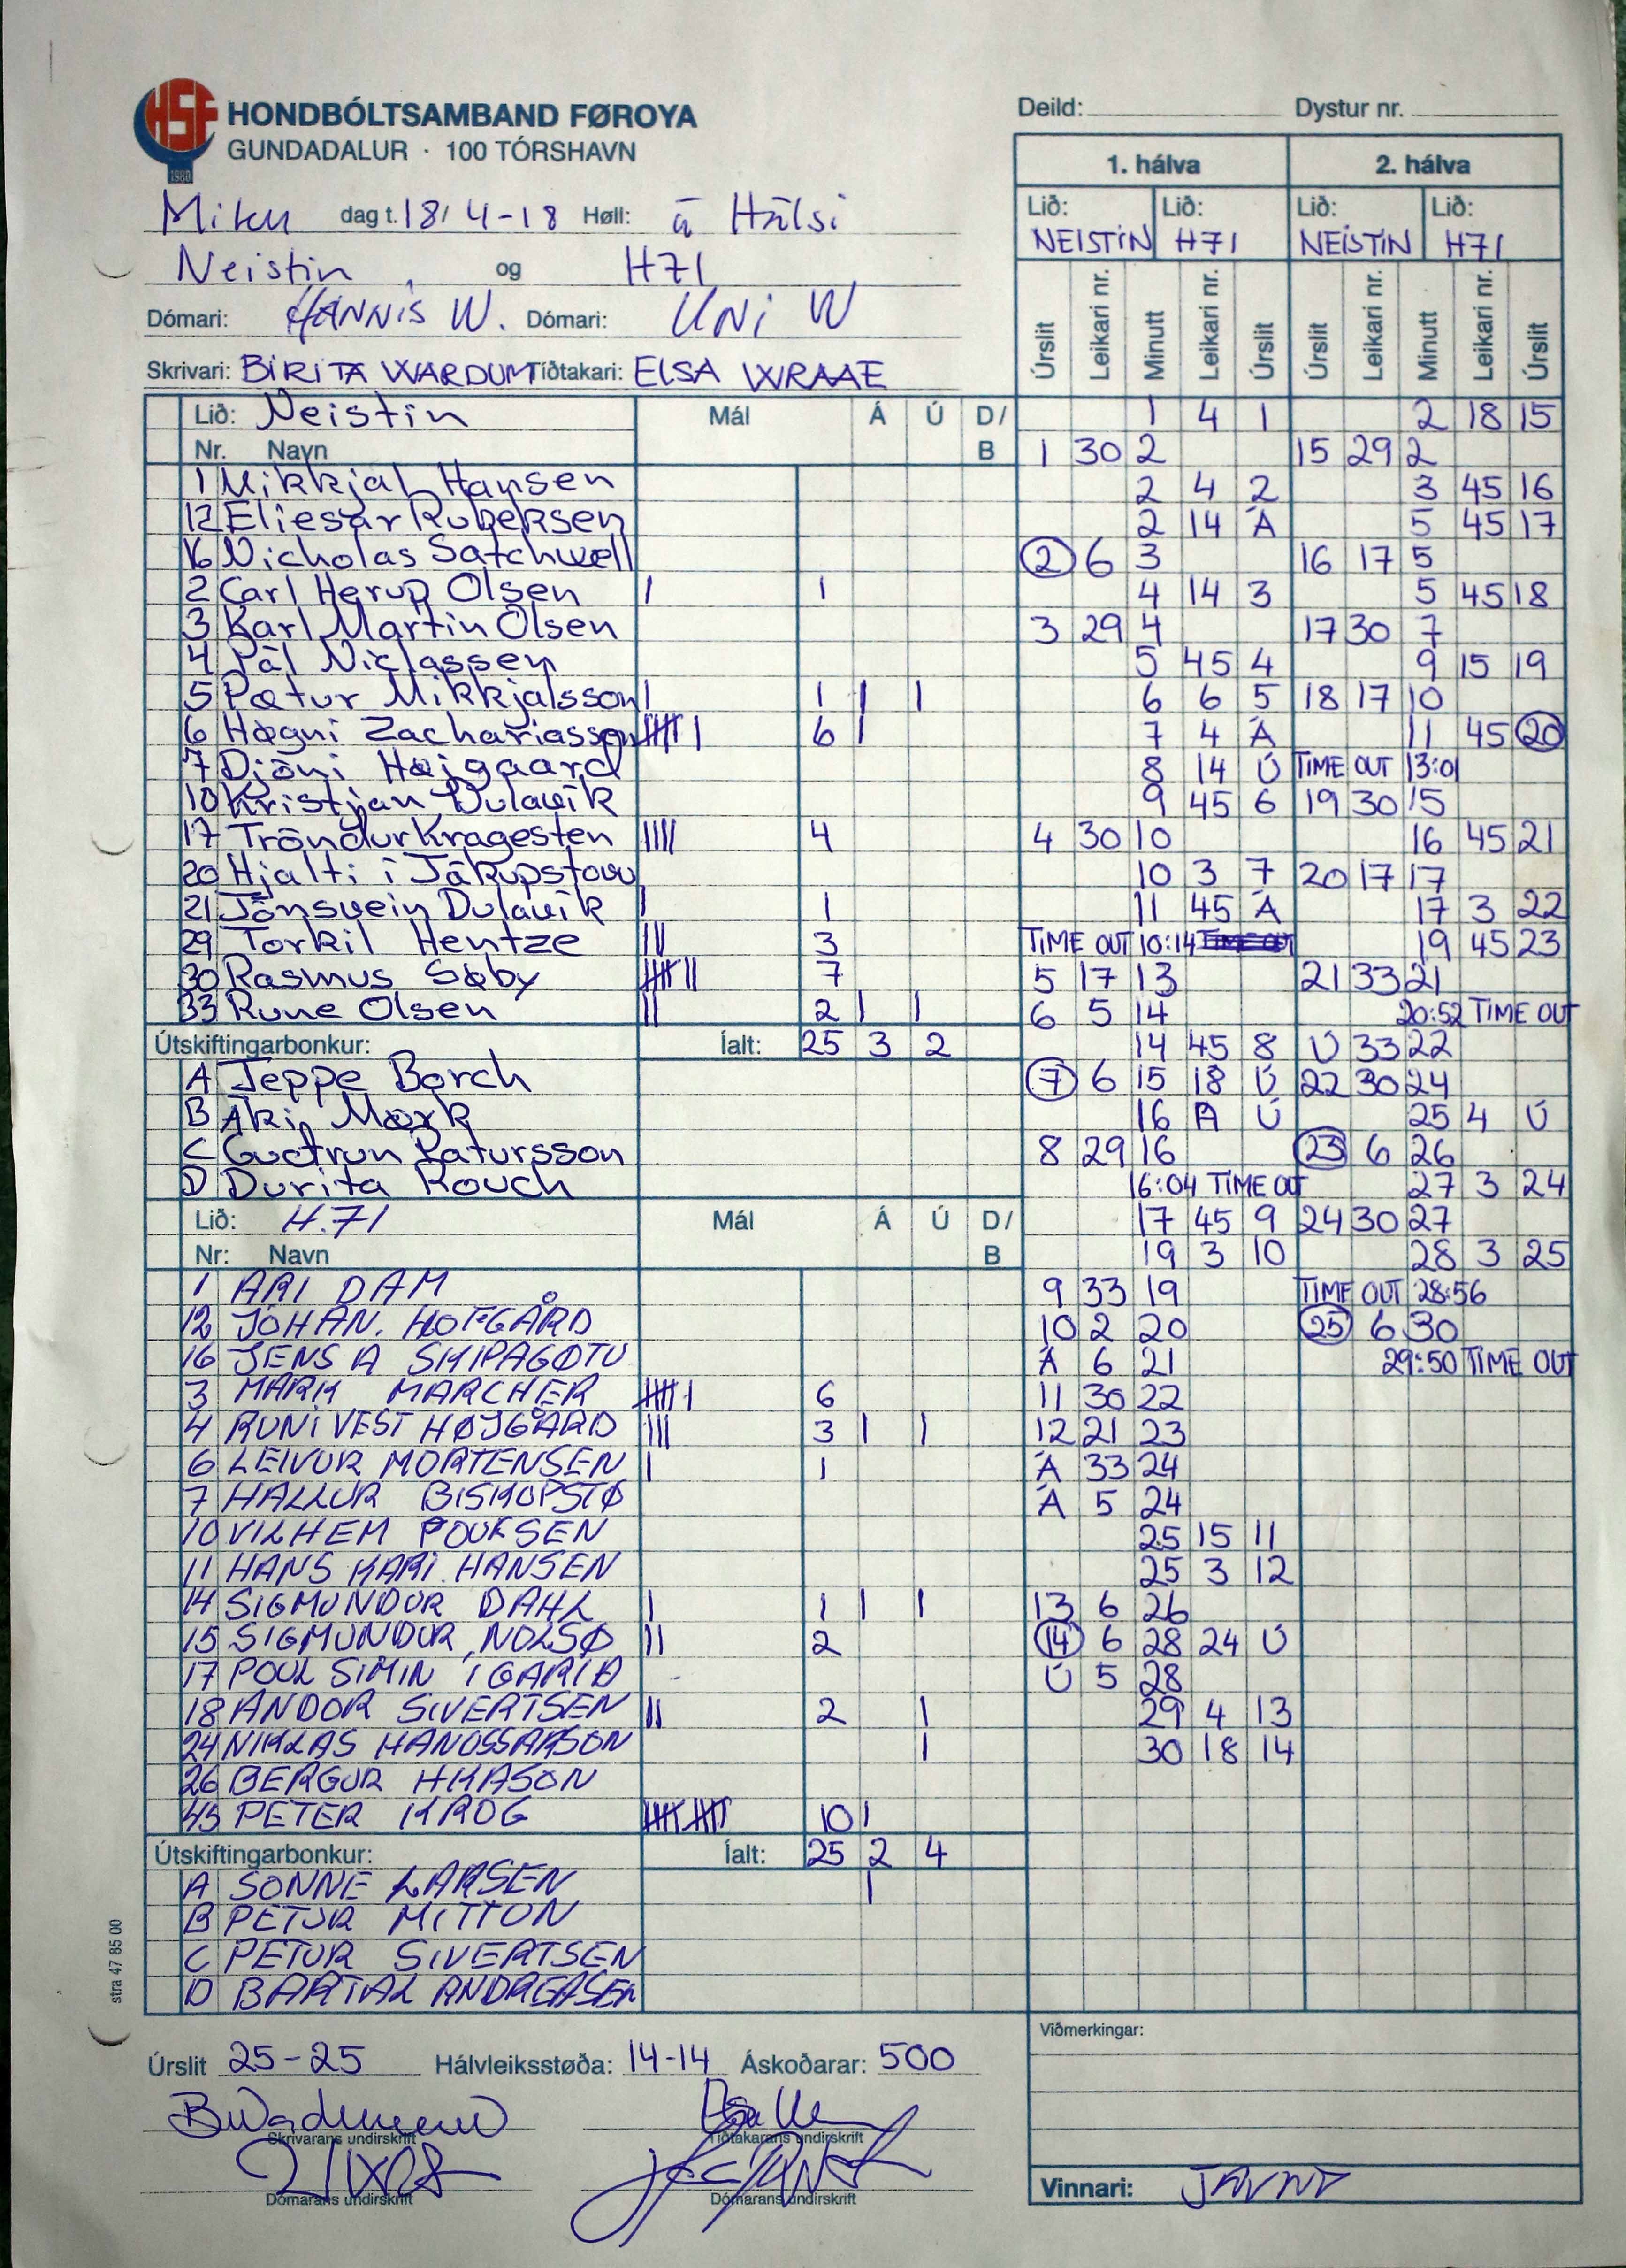 HSF
1980
HONDBÓLTSAMBAND FØROYA
GUNDADALUR · 100 TÓRSHAVN
Deild: Dystur nr.
Miku dag t. 18/4-18 Høll: á Hálsi
Neistin og H71
Dómari: HANNIS W. Dómari: UNI W
Skrivari: BIRITA WARDUM Tíðtakari: ELSA WRAAE
1. hálva 2. hálva
Lið: Lið: Lið: Lið:
NEISTIN H71 NEISTIN H71
Úrslit Leikari nr. Minutt Leikari nr. Úrslit Úrslit Leikari nr. Minutt Leikari nr. Úrslit
Lið: Neistin Mál Á Ú D/
Nr. Navn B
1 Mikkjal Hansen
12 Eliesar Rubeksen
16 Nicholas Satchwell
2 Carl Herup Olsen | 1
3 Karl Martin Olsen
4 Pál Niclassen
5 Pætur Mikkjalsson | 1 | |
6 Høgni Zachariasson |||||| 6 |
7 Djóni Højgaard
10 Kristjan Dulavík
17 Tróndur Kragesten |||| 4
20 Hjalti í Jákupstovu
21 Jónsvein Dulavík | 1
29 Torkil Hentze ||| 3
30 Rasmus Søby ||||||| 7
33 Rune Olsen || 2 | |
Útskiftingarbonkur: Íalt: 25 3 2
A Jeppe Borch
B Áki Mørk
C Gudtrun Patursson
D Durita Kouch
Lið: H.71 Mál Á Ú D/
Nr: Navn B
1 ARI DAM
12 JÓHAN. HOFGÅRD
16 JENS A SKIPAGØTU
3 MARK MARCHER |||||| 6
4 RUNI VEST HØJGÅRD ||| 3 | |
6 LEIVUR MORTENSEN | 1
7 HALLUR BISKOPSTØ
10 VILHEM POULSEN
11 HANS KARI. HANSEN
14 SIGMUNDUR DAHL | 1 | |
15 SIGMUNDUR NOLSØ || 2
17 POUL SIMIN Í GARÐA
18 ANDOR SIVERTSEN || 2 |
24 NIKLAS HANUSSARSON |
26 BERGUR HKASON
45 PETER KROG |||||||||| 10 |
Útskiftingarbonkur: Íalt: 25 2 4
A SONNE LARSEN |
B PETUR MITTON
C PETUR SIVERTSEN
D BARTAL ANDREASEN
1 4 1 2 18 15
1 30 2 15 29 2
2 4 2 3 45 16
2 14 Á 5 45 17
2 6 3 16 17 5
4 14 3 5 45 18
3 29 4 17 30 7
5 45 4 9 15 19
6 6 5 18 17 10
7 4 Á 11 45 20
8 14 Ú TIME OUT 13:01
9 45 6 19 30 15
4 30 10 16 45 21
10 3 7 20 17 17
11 45 Á 17 3 22
TIME OUT 10:14 TIME OUT 19 45 23
5 17 13 21 33 21
6 5 14 20:52 TIME OUT
14 45 8 Ú 33 22
7 6 15 18 Ú 22 30 24
16 A Ú 25 4 Ú
8 29 16 23 6 26
16:04 TIME OUT 27 3 24
17 45 9 24 30 27
19 3 10 28 3 25
9 33 19 TIME OUT 28:56
10 2 20 25 6 30
Á 6 21 29:50 TIME OUT
11 30 22
12 21 23
Á 33 24
Á 5 24
25 15 11
25 3 12
13 6 26
14 6 28 24 Ú
Ú 5 28
29 4 13
30 18 14
stra 47 85 00
Viðmerkingar:
Úrslit 25-25 Hálvleiksstøða: 14-14 Áskoðarar: 500
Skrivarans undirskrift Tíðtakarans undirskrift
Dómarans undirskrift Dómarans undirskrift
Vinnari: JAVNT